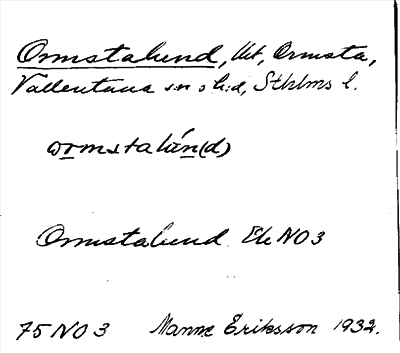 Ormstalund, Utt, Ormsta,
Vallentuna sn o h:d, Sthlms l.
ωormstalún(d)
Ormstalund Ek NO 3
75 NO 3 Manne Eriksson 1932.